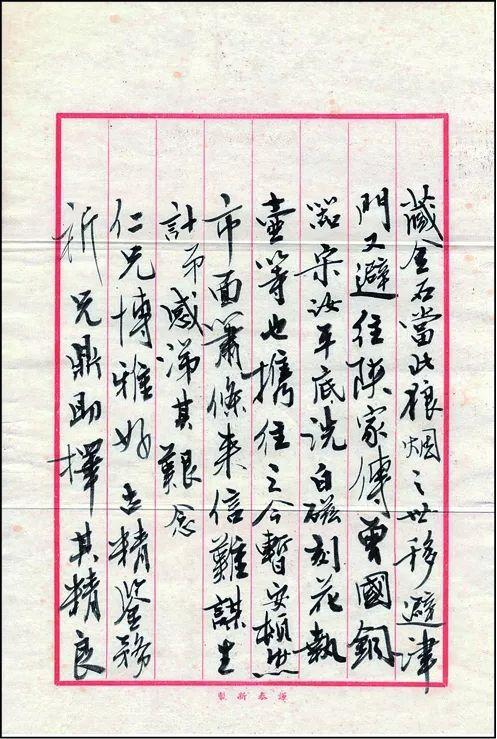 藏金石當此狼烟之世移避津
門又避往陝家傳曾國銅
器宋汝平底洗白磁刻花執
壺等也携往之今暫安頓然
市面蕭條来信難謀生
計弟感涕其艱念
仁兄博雅好古精鉴務
祈兄鼎助擇其精良
泰新製